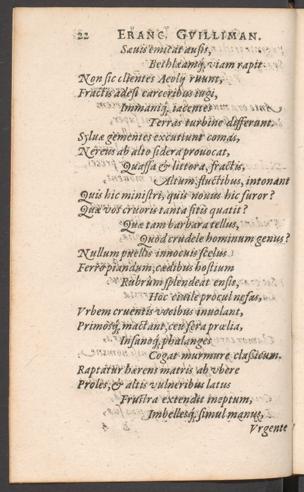 22 FRANC. GVILLIMAN.
Sauis emicat ausis,
Bethlæamq́, viam rapit.
Non sic clientes Aeolij ruunt,
Fractis adesi carceribus iugi,
Immaniq́, iacentes
Terras turbine differunt.
Syluæ gementes excutiunt comas,
Nereus ab alto sidera prouocat,
Quassa & littora, fractis,
Altùm fluctibus, intonant
Quis hic ministri, quis nouus hic furor?
Quæ vos cruoris tanta sitis quatit?
Quæ tam barbara tellus,
Quod crudele hominum genus?
Nullum puellis innocuis scelus
Ferro piandum, cædibus hostium
Rubrum splendeat ensis,
Hoc ciuile procul nefas,
Vrbem cruentis vocibus inuolant,
Primosq́, mactant, ceu fera prælia,
Insanoq́, phalanges
Cogat murmure classicum.
Raptatur hærens matris ab vbere
Proles, & altis vulneribus latus
Frustra extendit ineptum,
Imbellesq́, simul manus,
Vrgente